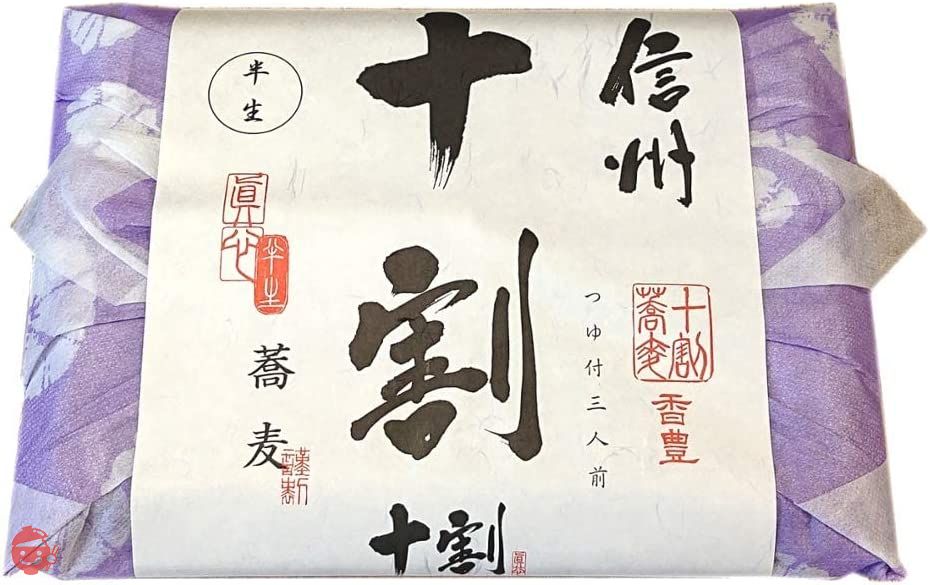 信州
十割蕎麦
香豊
つゆ付三人前
十割
半生
半生
蕎麦
十割